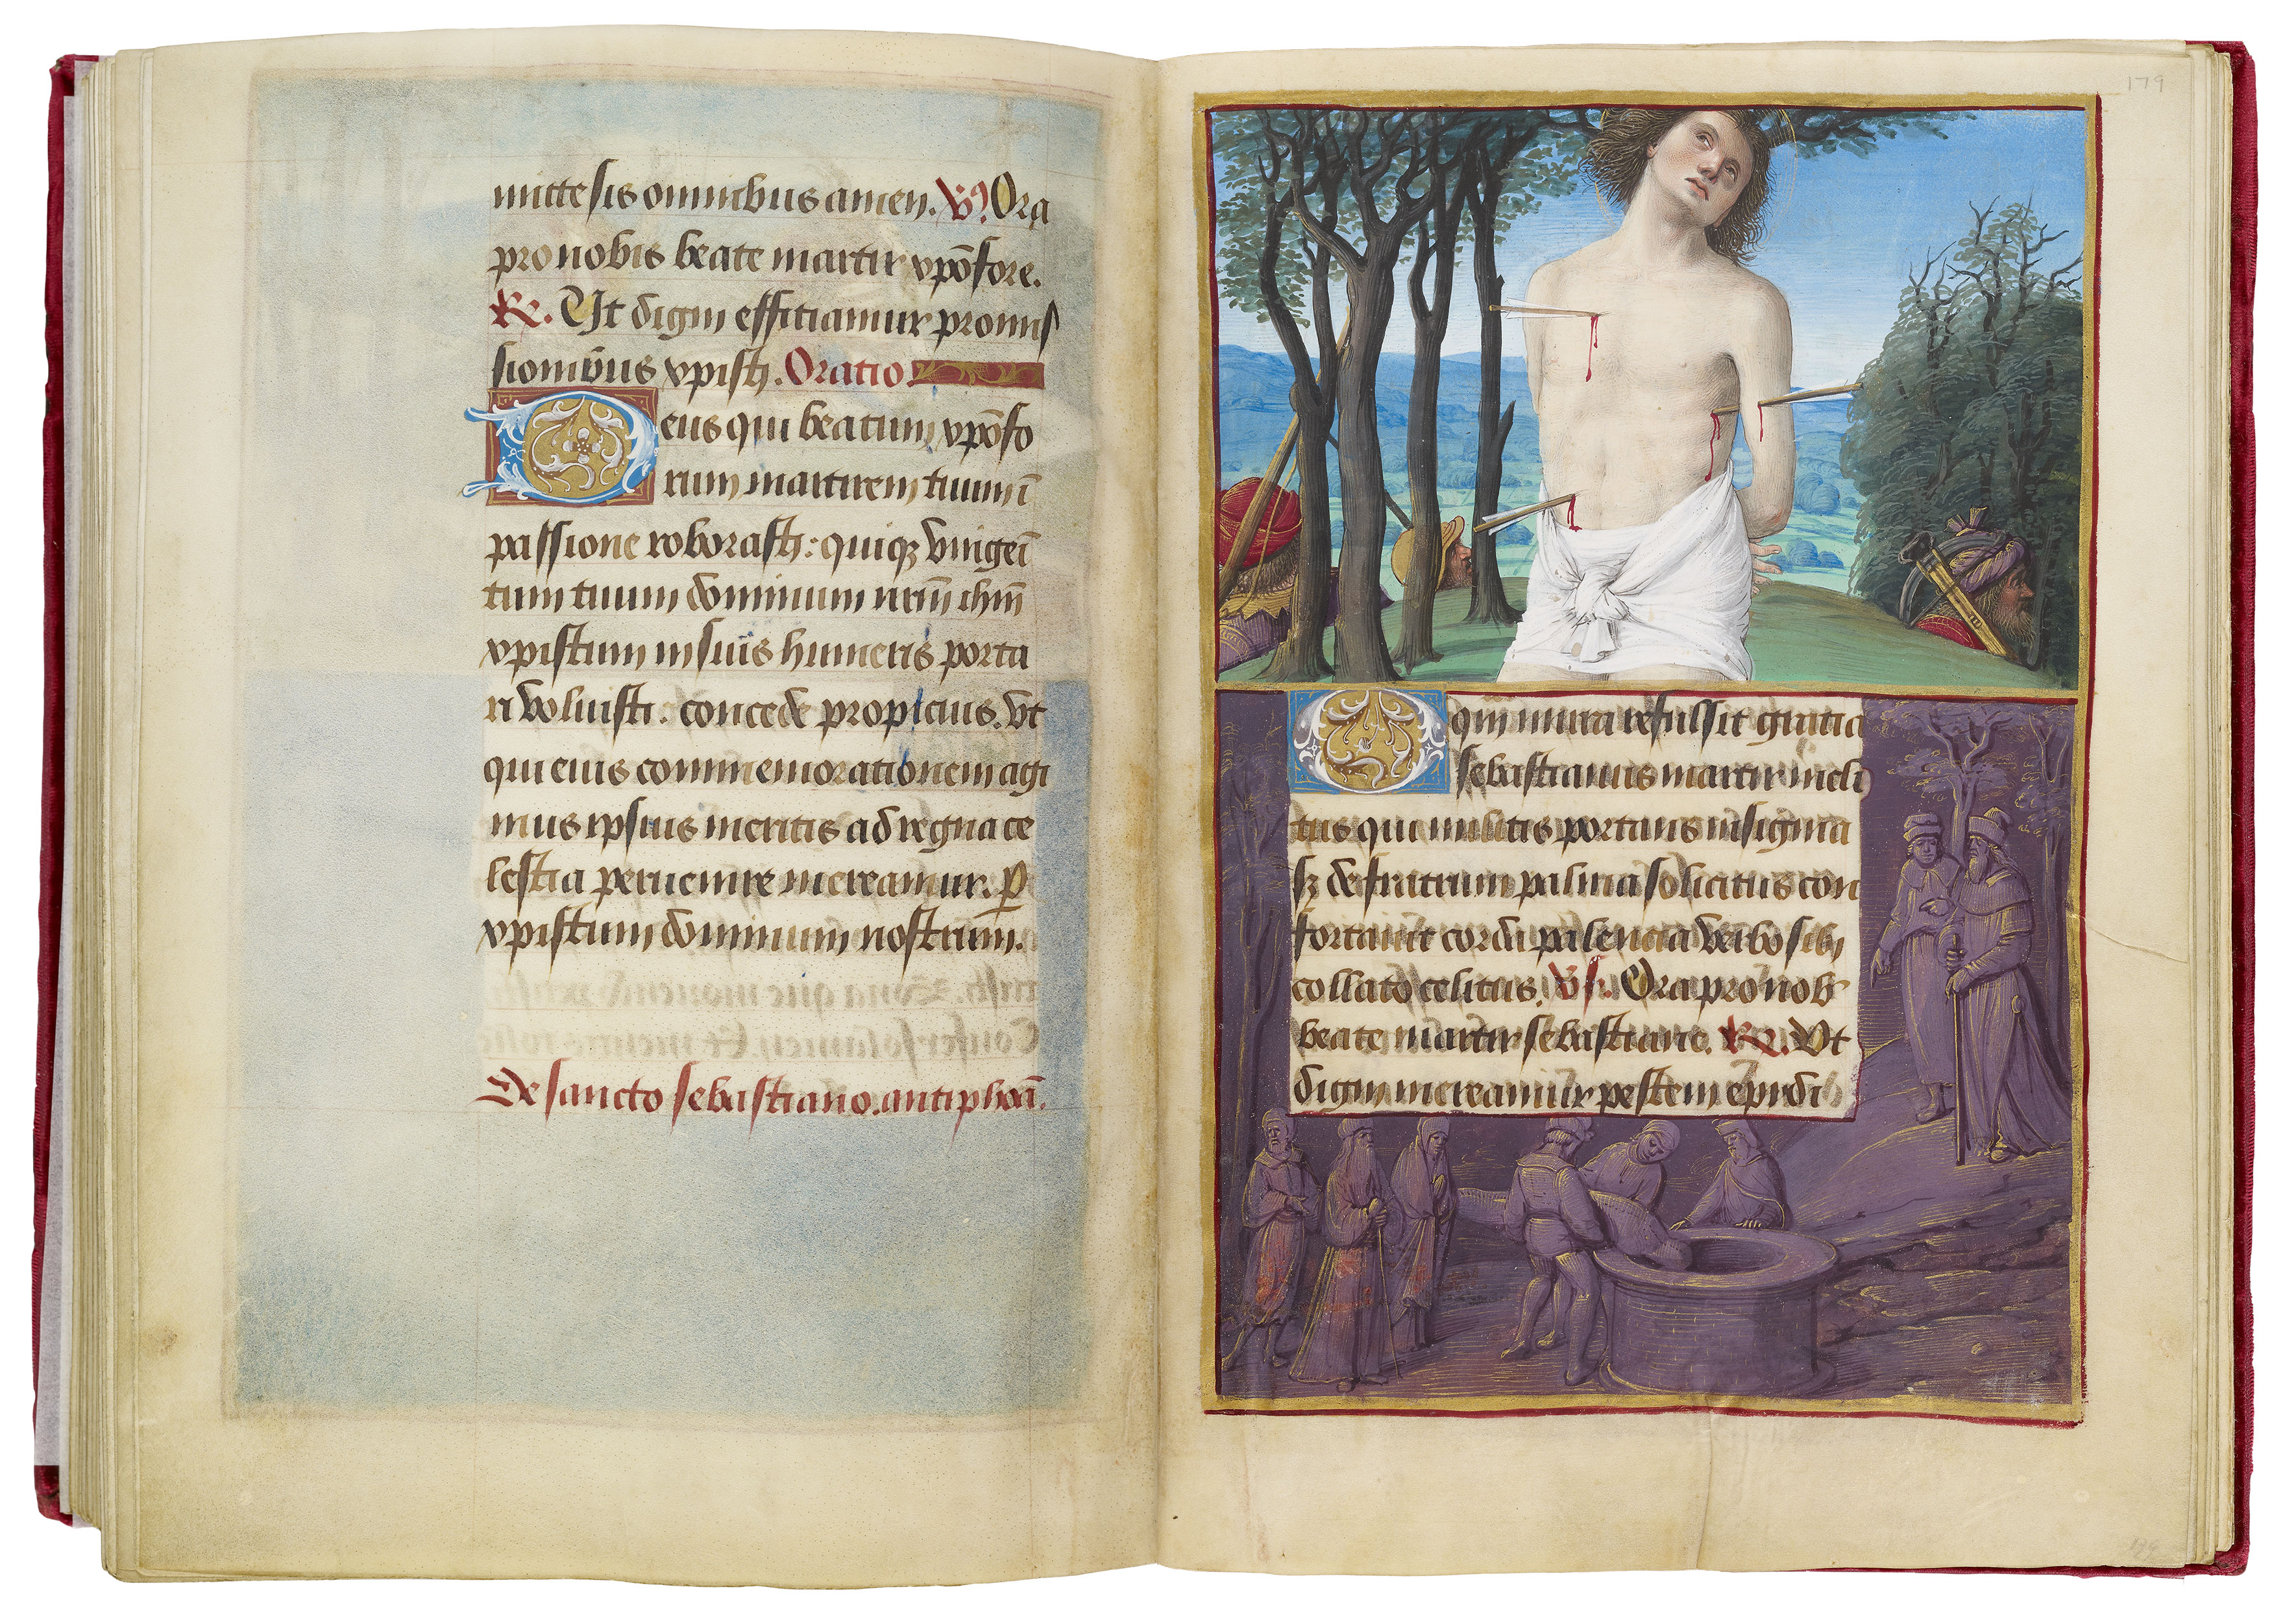 mitte sis omnibus amen. V9. Ora
pro nobis beate martir xpõfore.
R. Ut digni effitiamur promis
sionibus xpisti. Oratio
Deus qui beatum xpõfo
rum martirem tuum ĩ
passione roborasti: quiqz vnigeĩ
tum tuum dominum nrm̃ ihm̃
xpistum in suis humeris porta
ri voluisti. concede propicius. vt
qui eius commemorationem agi
mus ipsius meritis ad regna ce
lestia peruenire mereamur. P
xpistum dominum nostrum.
De sancto sebastiano. antiphoã.
179
O qm mira refulsit gratia
sebastianus martir incli
tus qui militis portans insignia
sz de fratrum palma solicitus con
fortauit corda palencia verbo sibi
collato celitus. Vs. Ora pro nob
beate martir sebastiane. R. Vt
digni mereamur pestem epidi